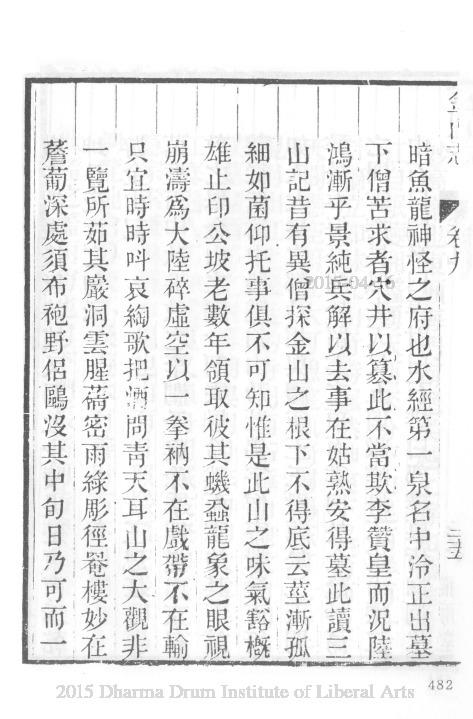 金山志
卷九
三五
暗魚龍神怪之府也水經第一泉名中泠正出墓
下僧苦求者穴井以篡此不當欺李贊皇而況陸
鴻漸乎景純兵解以去事在姑熟安得墓此讀三
山記昔有異僧探金山之根下不得底云莖漸孤
細如菌仰托事俱不可知惟是此山之味氣豁概
雄止印公坡老數年領取彼其蟣蝨龍象之眼視
崩濤為大陸碎虛空以一拳衲不在戲帶不在輸
只宜時時呌哀綯歌把酒問靑天耳山之大觀非
一覽所茹其巖洞雲腥蒨密雨綠彫徑罨樓妙在
薝蔔深處須布袍野侶鷗沒其中旬日乃可而一
482
2015-04-16
2015 Dharma Drum Institute of Liberal Arts